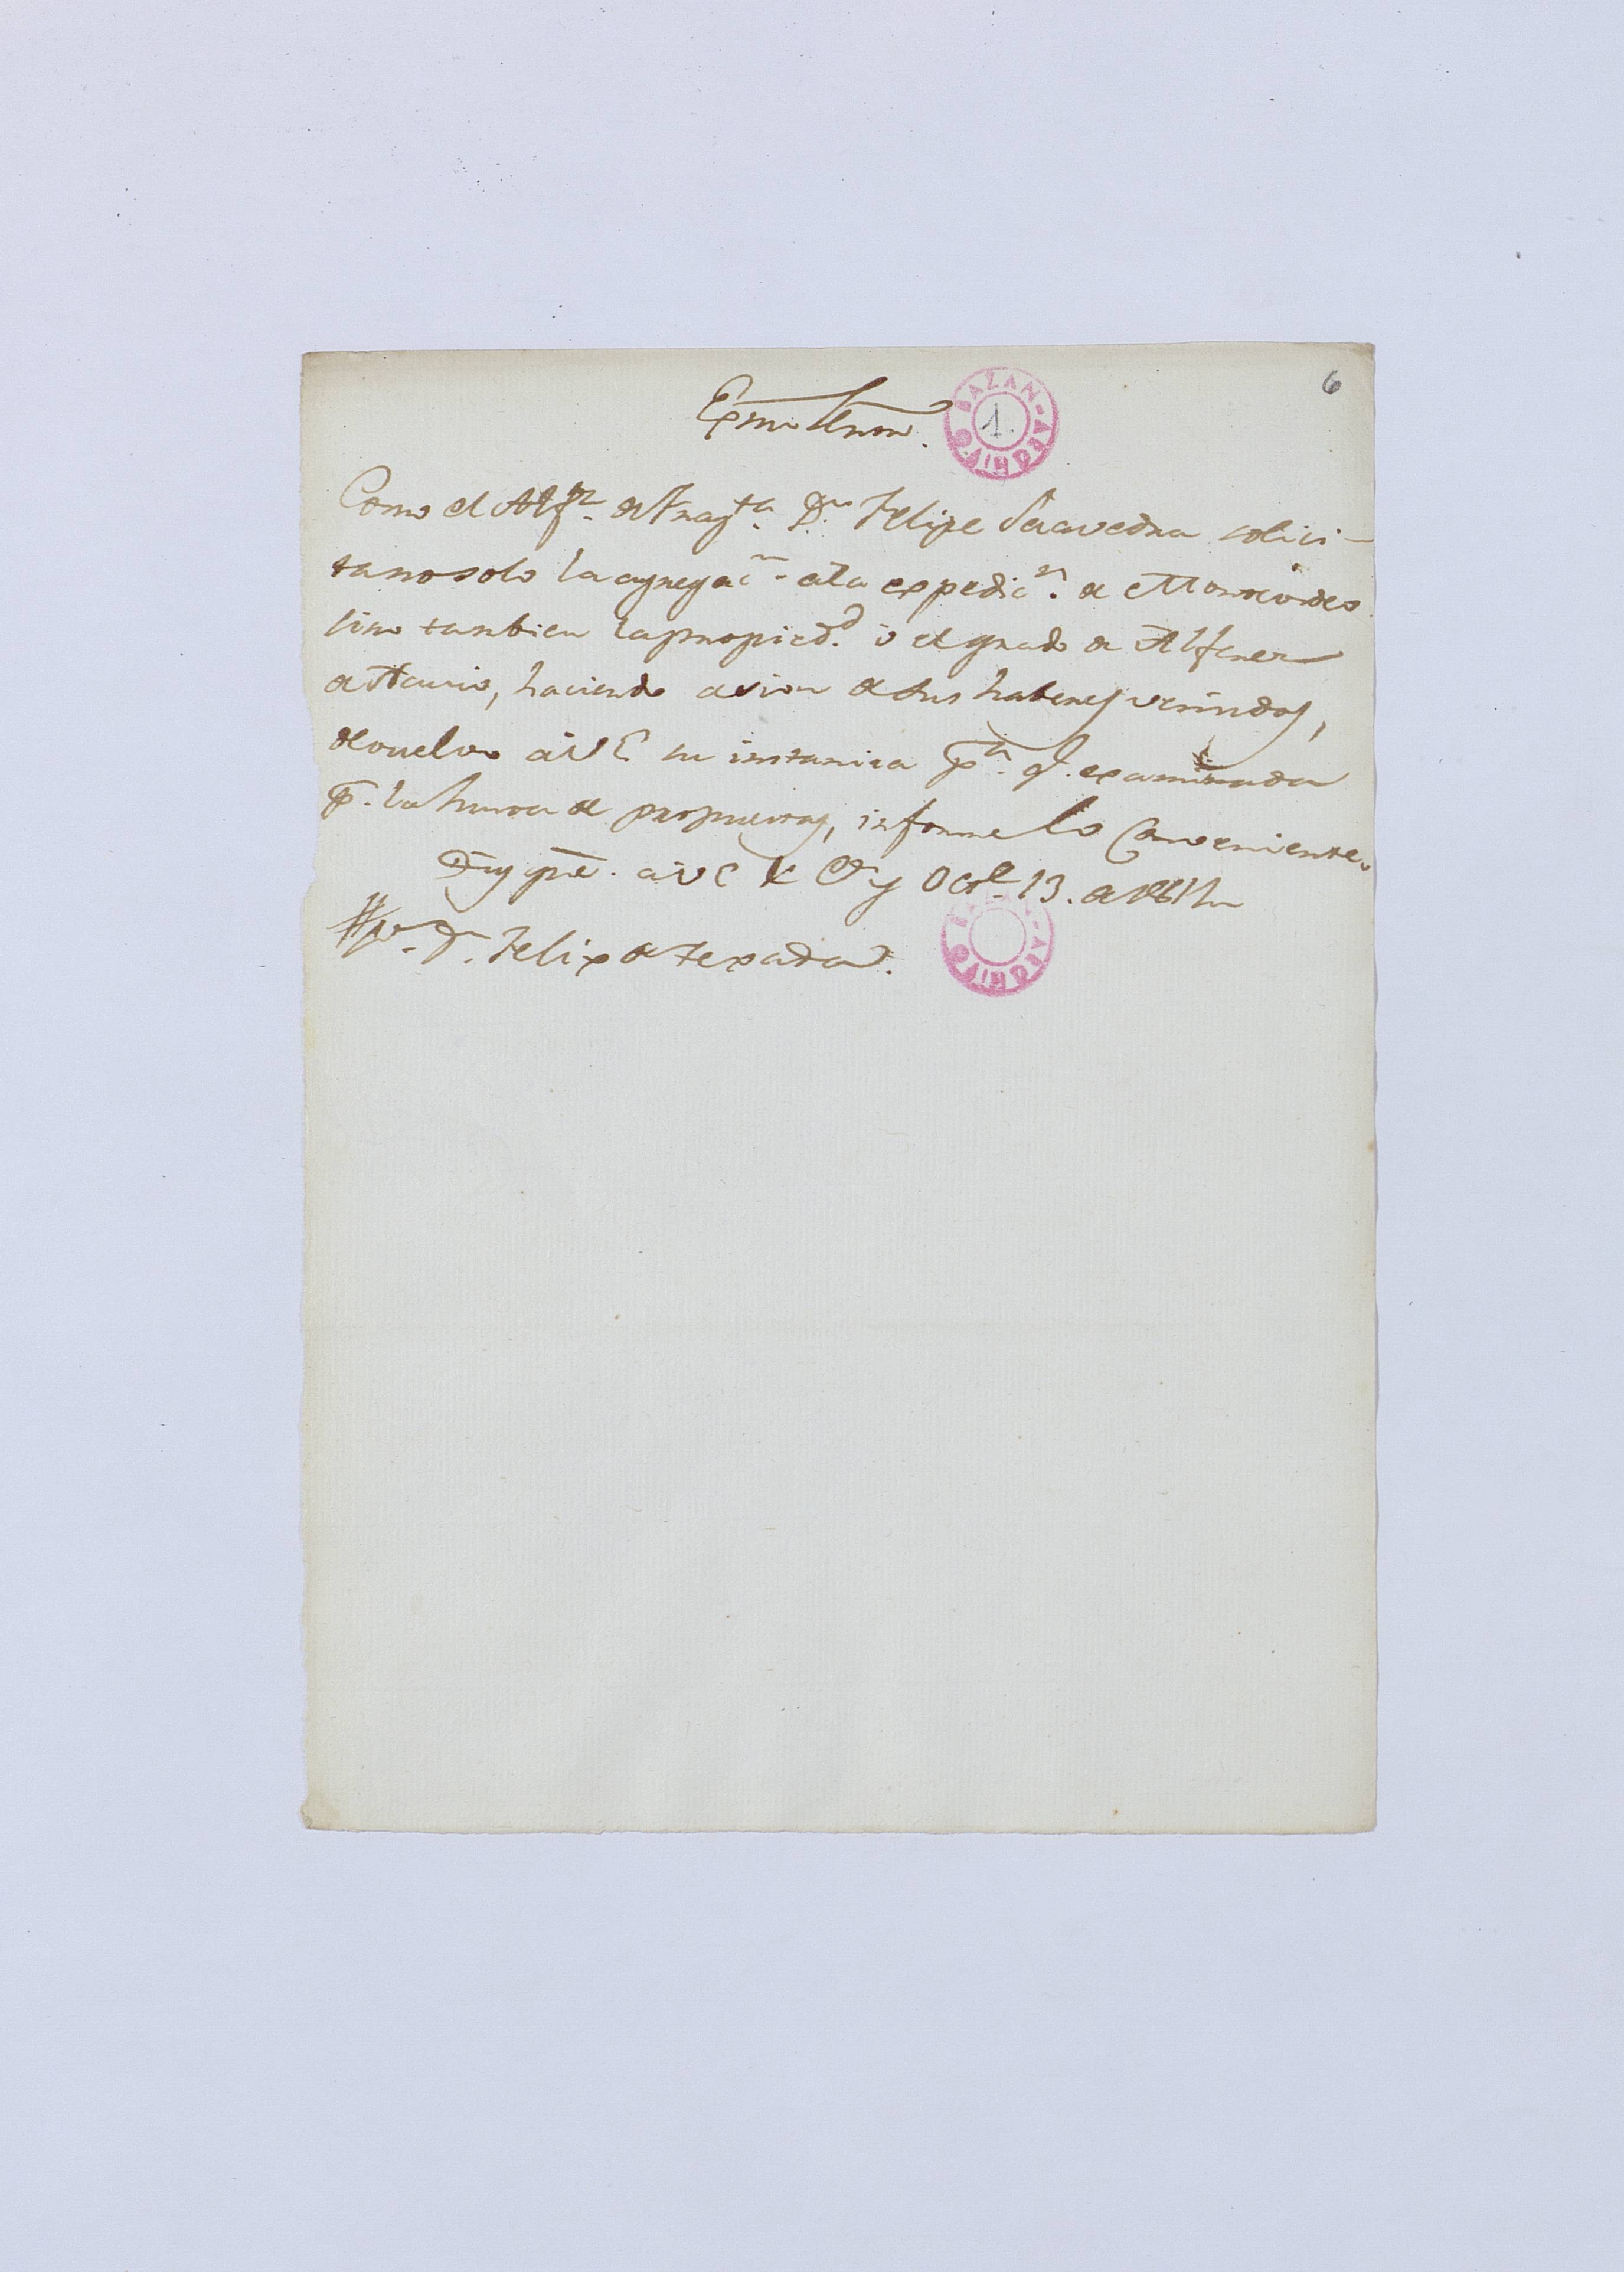 6
Exmo. Señor.
BAZAN-ARCHIVO
1.
Como el Alfz. de Fragta. Dn. Felipe Saavedra solici-
ta no solo la agregacn. ala expedicn. de Montevideo
sino tambien la propiedd. ó el grado de Alferez
de Navio, haciendo de sus haberes vencidos,
devuelvo á V E su instancia pa. q. examinada
pr. la Junta de propuestas, informe lo conveniente.
Dios gue. a V E Octe. 13. de
Dn. Felix de Texada.
BAZAN-ARCHIVO